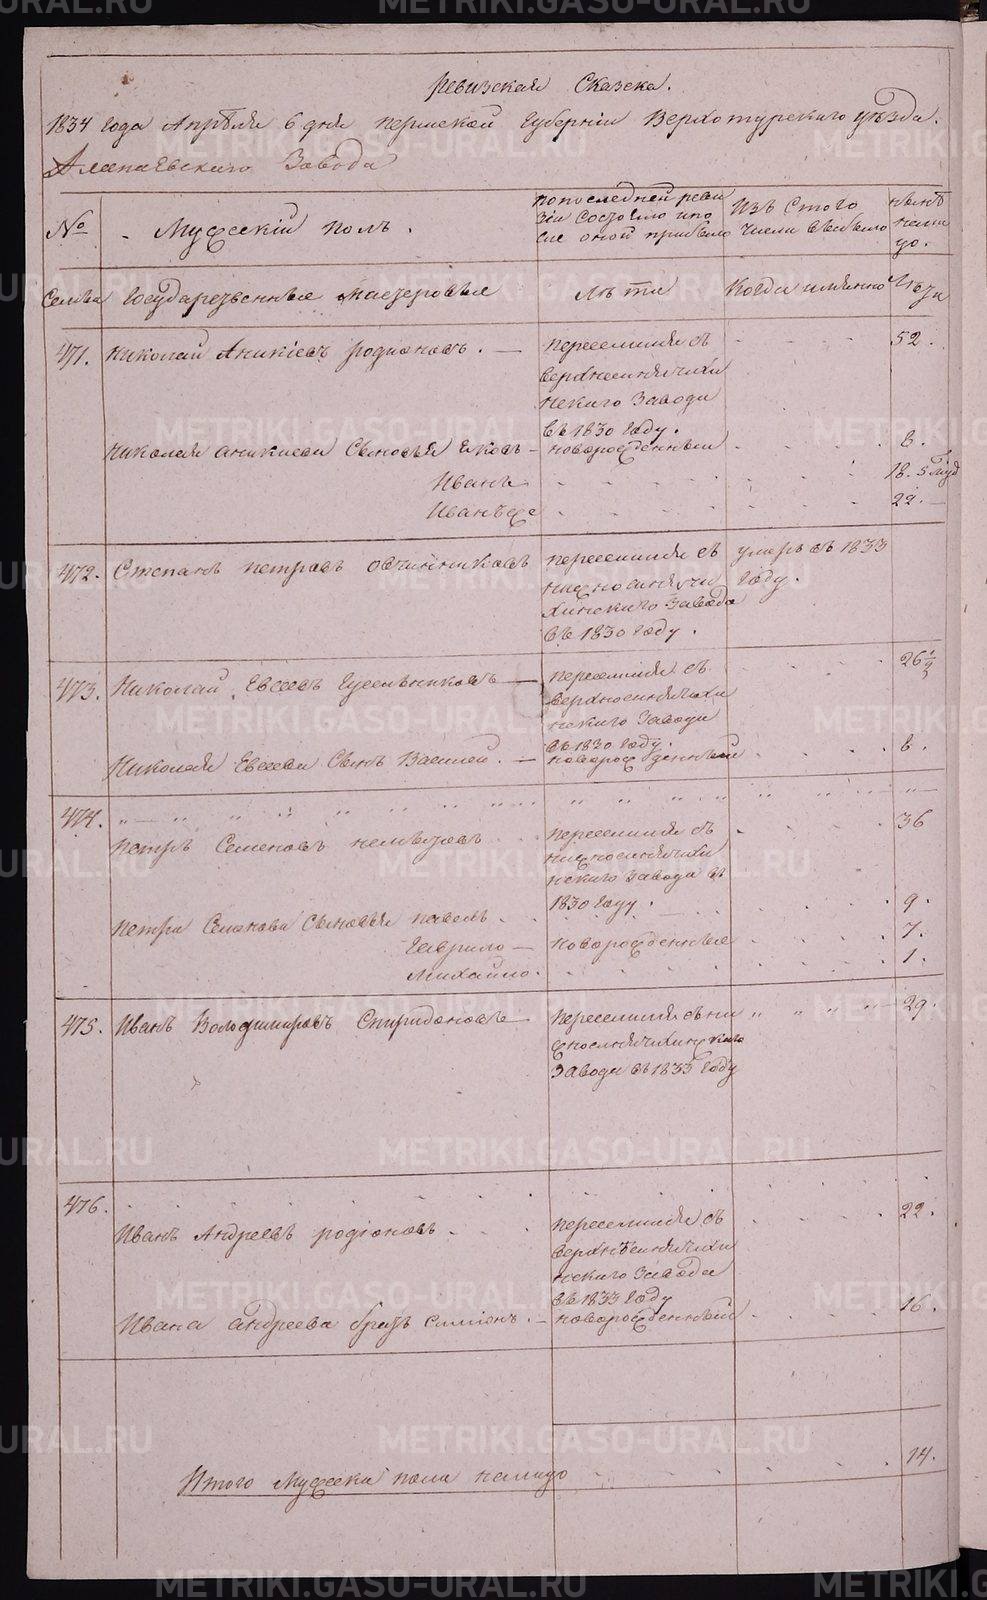 Ревизская Сказка.
1834 года Апрѣля 6 дня Пермской Губерніи Верхотурскаго уѣзда.
Алапаевскаго Завода
№ Мужескій полъ.
по последней реви
зіи состояло и по
сле оной прибыло
Изъ того
числа выбыло
нынѣ
нали
цо.
Семьи Государственные мастеровые
Лѣта
Когда имянно
Лѣта
471. Николай Аникіевъ родіоновъ.
переселился съ
верхнесинячихи
нскаго Завода
въ 1830 году.
52.
Николая аникиева сыновья яковъ
новорожденный
6.
Иванъ
18. 5
Иванъ же
22.
472. Степанъ петровъ овчинниковъ
переселился съ
нижносинячи
хинскаго Завода
въ 1830 году.
умеръ въ 1833
году.
473. Николай Евсеевъ Гусельниковъ
переселился съ
верхносинячихи
нскаго Завода
въ 1830 году.
26 1/2
Николая Евсеева сынъ Василей.
новорожденный
6.
474.
Петръ Семеновъ немытовъ
переселился съ
нижносинячихи
нскаго завода въ
1830 году.
36
петра Семенова сыновья павелъ
9.
Гаврило
новорожденные
7.
Михайло.
1.
475. Иванъ Володимировъ Спиридоновъ
переселился съ ни
жносинячихинскаго
Завода въ 1833 году
29.
476.
Иванъ Андреевъ родіоновъ
переселился съ
верхнѣсинячихи
нскаго Завода
въ 1833 году
22.
Ивана андреева братъ симіонъ.
новорожденный
16.
Итого Мужеска пола налицо
14.
METRIKI.GASO-URAL.RU